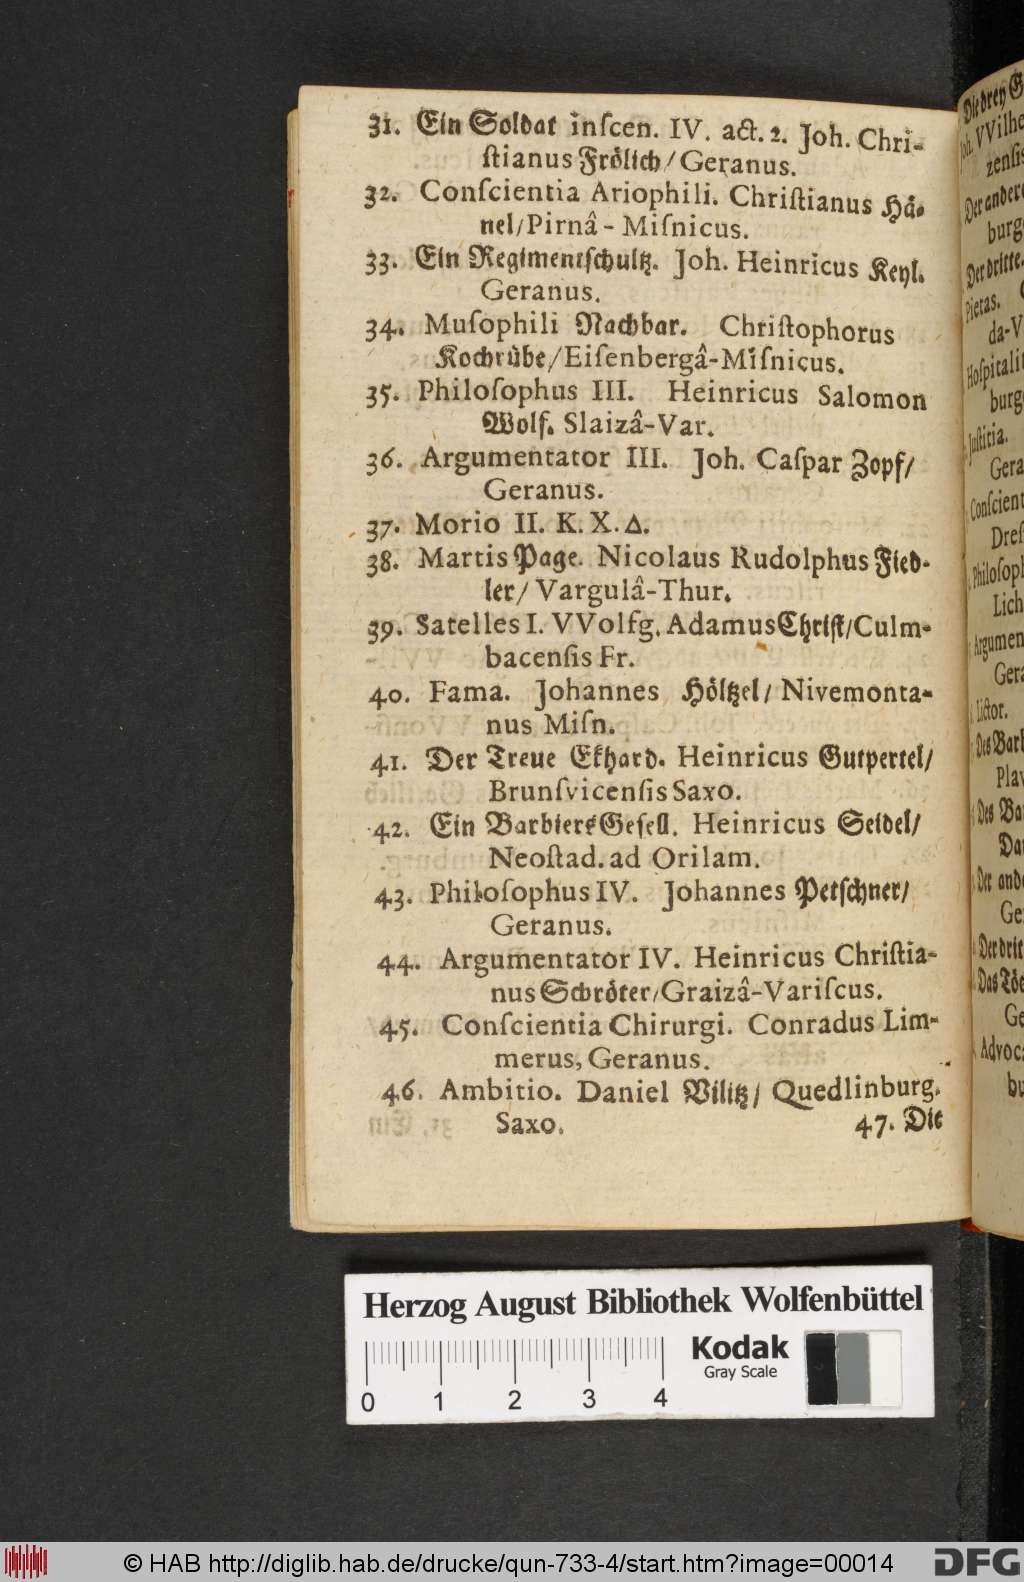 31. Ein Soldat inſcen. IV. act. 2. Joh. Chri-
ſtianus Frölich/ Geranus.
32. Conſcientia Ariophili. Chriſtianus Hä-
nel/ Pirnâ - Miſnicus.
33. Ein Regimentſchultz. Joh. Heinricus Keyl.
Geranus.
34. Muſophili Nachbar. Chriſtophorus
Kochrübe/ Eiſenbergâ-Miſnicus.
35. Philoſophus III. Heinricus Salomon
Wolf. Slaizâ-Var.
36. Argumentator III. Joh. Caſpar Zopf/
Geranus.
37. Morio II. K. X. Δ.
38. Martis Page. Nicolaus Rudolphus Fied-
ler/ Vargulâ-Thur.
39. Satelles I. VVolfg. Adamus Chriſt/ Culm-
bacenſis Fr.
40. Fama. Johannes Höltzel/ Nivemonta-
nus Miſn.
41. Der Treue Ekhard. Heinricus Gutpertel/
Brunſvicenſis Saxo.
42. Ein Barbiers Geſell. Heinricus Seidel/
Neoſtad. ad Orilam.
43. Philoſophus IV. Johannes Petſchner/
Geranus.
44. Argumentator IV. Heinricus Chriſtia-
nus Schröter/ Graizâ-Variſcus.
45. Conſcientia Chirurgi. Conradus Lim-
merus, Geranus.
46. Ambitio. Daniel Vilitz/ Quedlinburg.
Saxo. 47. Die
Die drey
Joh. VVilhe
zenſis
Der andere
burg
Der dritte.
Pietas.
da-V
Hoſpitalit
burg
Juſtitia.
Gera
Conſcient
Dreſ
Philoſoph
Lich
Argumen
Gera
Lictor.
Des Barb
Plav
Des Bar
Der ande
Ge
Der drit
Ge
Advoca
bu
Herzog August Bibliothek Wolfenbüttel
Kodak
Gray Scale
0 1 2 3 4
© HAB http://diglib.hab.de/drucke/qun-733-4/start.htm?image=00014
DFG